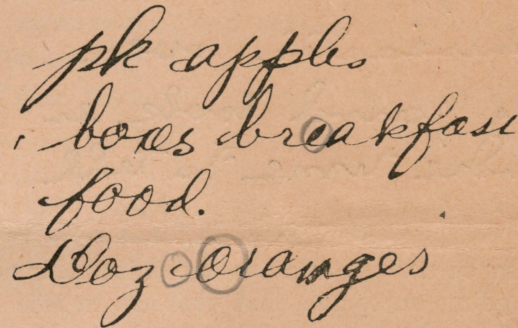 pk apples
boxes breakfast
food.
Doz oranges